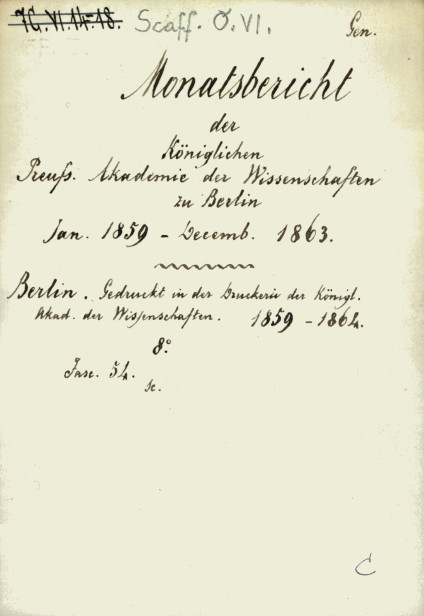 7G. VI. 14-18. Scaff. O. VI. Gen.
Monatsbericht
der
Königlichen
Preuſs. Akademie der Wissenschaften
zu Berlin
Jan. 1859 - Decemb. 1863.
Berlin. Gedruckt in der Druckerei der Königl.
Akad. der Wiſsenschaften. 1859 - 1864.
8.°
Fasc. 54.
sc.
C